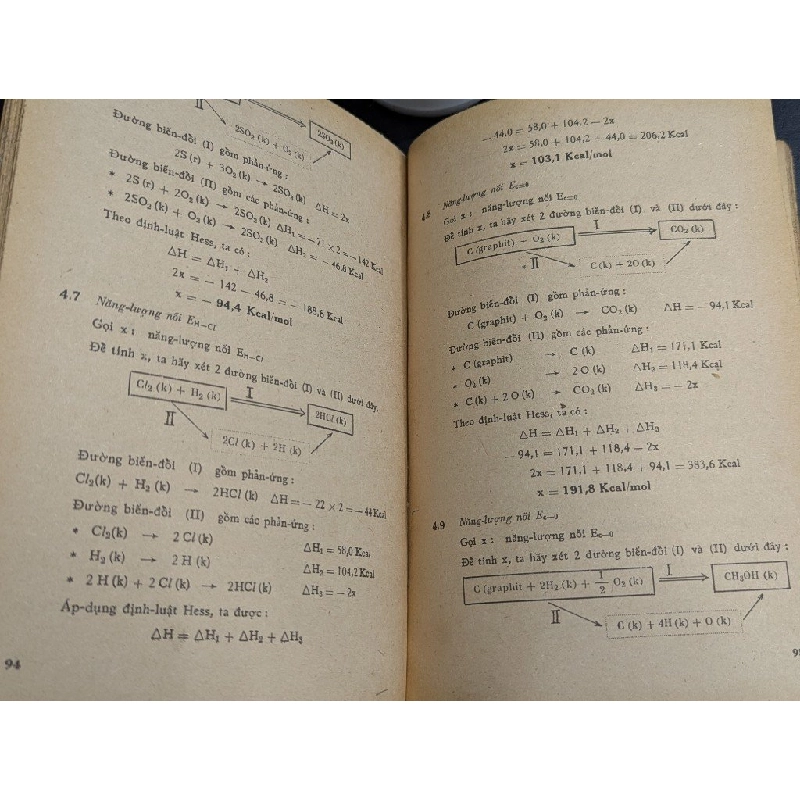 II
2SO₂ (k) + O₂ (k)
2SO₃ (k)
Đường biến-đổi (I) gồm phản-ứng :
2S (r) + 3O₂ (k) → 2SO₃ (k) ΔH = 2x
Đường biến-đổi (II) gồm các phản-ứng :
* 2S (r) + 2O₂ (k) → 2SO₂ (k) ΔH₁ = − 71 × 2 = − 142 Kcal
* 2SO₂ (k) + O₂ (k) → 2SO₃ (k) ΔH₂ = − 46,8 Kcal
Theo định-luật Hess, ta có :
ΔH = ΔH₁ + ΔH₂
2x = − 142 − 46,8 = − 188,8 Kcal
x = − 94,4 Kcal/mol
4.7 Năng-lượng nối E_H−Cl
Gọi x : năng-lượng nối E_H−Cl
Để tính x, ta hãy xét 2 đường biến-đổi (I) và (II) dưới đây.
Cl₂ (k) + H₂ (k)
I
2HCl (k)
II
2Cl (k) + 2H (k)
Đường biến-đổi (I) gồm phản-ứng :
Cl₂(k) + H₂ (k) → 2HCl (k) ΔH = − 22 × 2 = − 44 Kcal
Đường biến-đổi (II) gồm các phản-ứng :
* Cl₂(k) → 2 Cl (k) ΔH₁ = 58,0 Kcal
* H₂ (k) → 2 H (k) ΔH₂ = 104,2 Kcal
* 2 H (k) + 2 Cl (k) → 2HCl (k) ΔH₃ = − 2x
Áp-dụng định-luật Hess, ta được :
ΔH = ΔH₁ + ΔH₂ + ΔH₃
94
− 44,0 = 58,0 + 104,2 − 2x
2x = 58,0 + 104,2 + 44,0 = 206,2 Kcal
x = 103,1 Kcal/mol
4.8 Năng-lượng nối E_C=O
Gọi x : năng-lượng nối E_C=O
Để tính x, ta hãy xét 2 đường biến-đổi (I) và (II) dưới đây :
C (graphit) + O₂ (k)
I
CO₂ (k)
II
C (k) + 2O (k)
Đường biến-đổi (I) gồm phản-ứng :
C (graphit) + O₂ (k) → CO₂ (k) ΔH = − 94,1 Kcal
Đường biến-đổi (II) gồm các phản-ứng :
* C (graphit) → C (k) ΔH₁ = 171,1 Kcal
* O₂ (k) → 2 O (k) ΔH₂ = 118,4 Kcal
* C (k) + 2 O (k) → CO₂ (k) ΔH₃ = − 2x
Theo định-luật Hess, ta có :
ΔH = ΔH₁ + ΔH₂ + ΔH₃
− 94,1 = 171,1 + 118,4 − 2x
2x = 171,1 + 118,4 + 94,1 = 383,6 Kcal
x = 191,8 Kcal/mol
4.9 Năng-lượng nối
Gọi x : năng-lượng nối
Để tính x, ta hãy xét 2 đường biến-đổi (I) và (II) dưới đây :
C (graphit + 2H₂ (k) + 1/2 O₂ (k)
I
CH₃OH (k)
II
C (k) + 4H (k) + O (k)